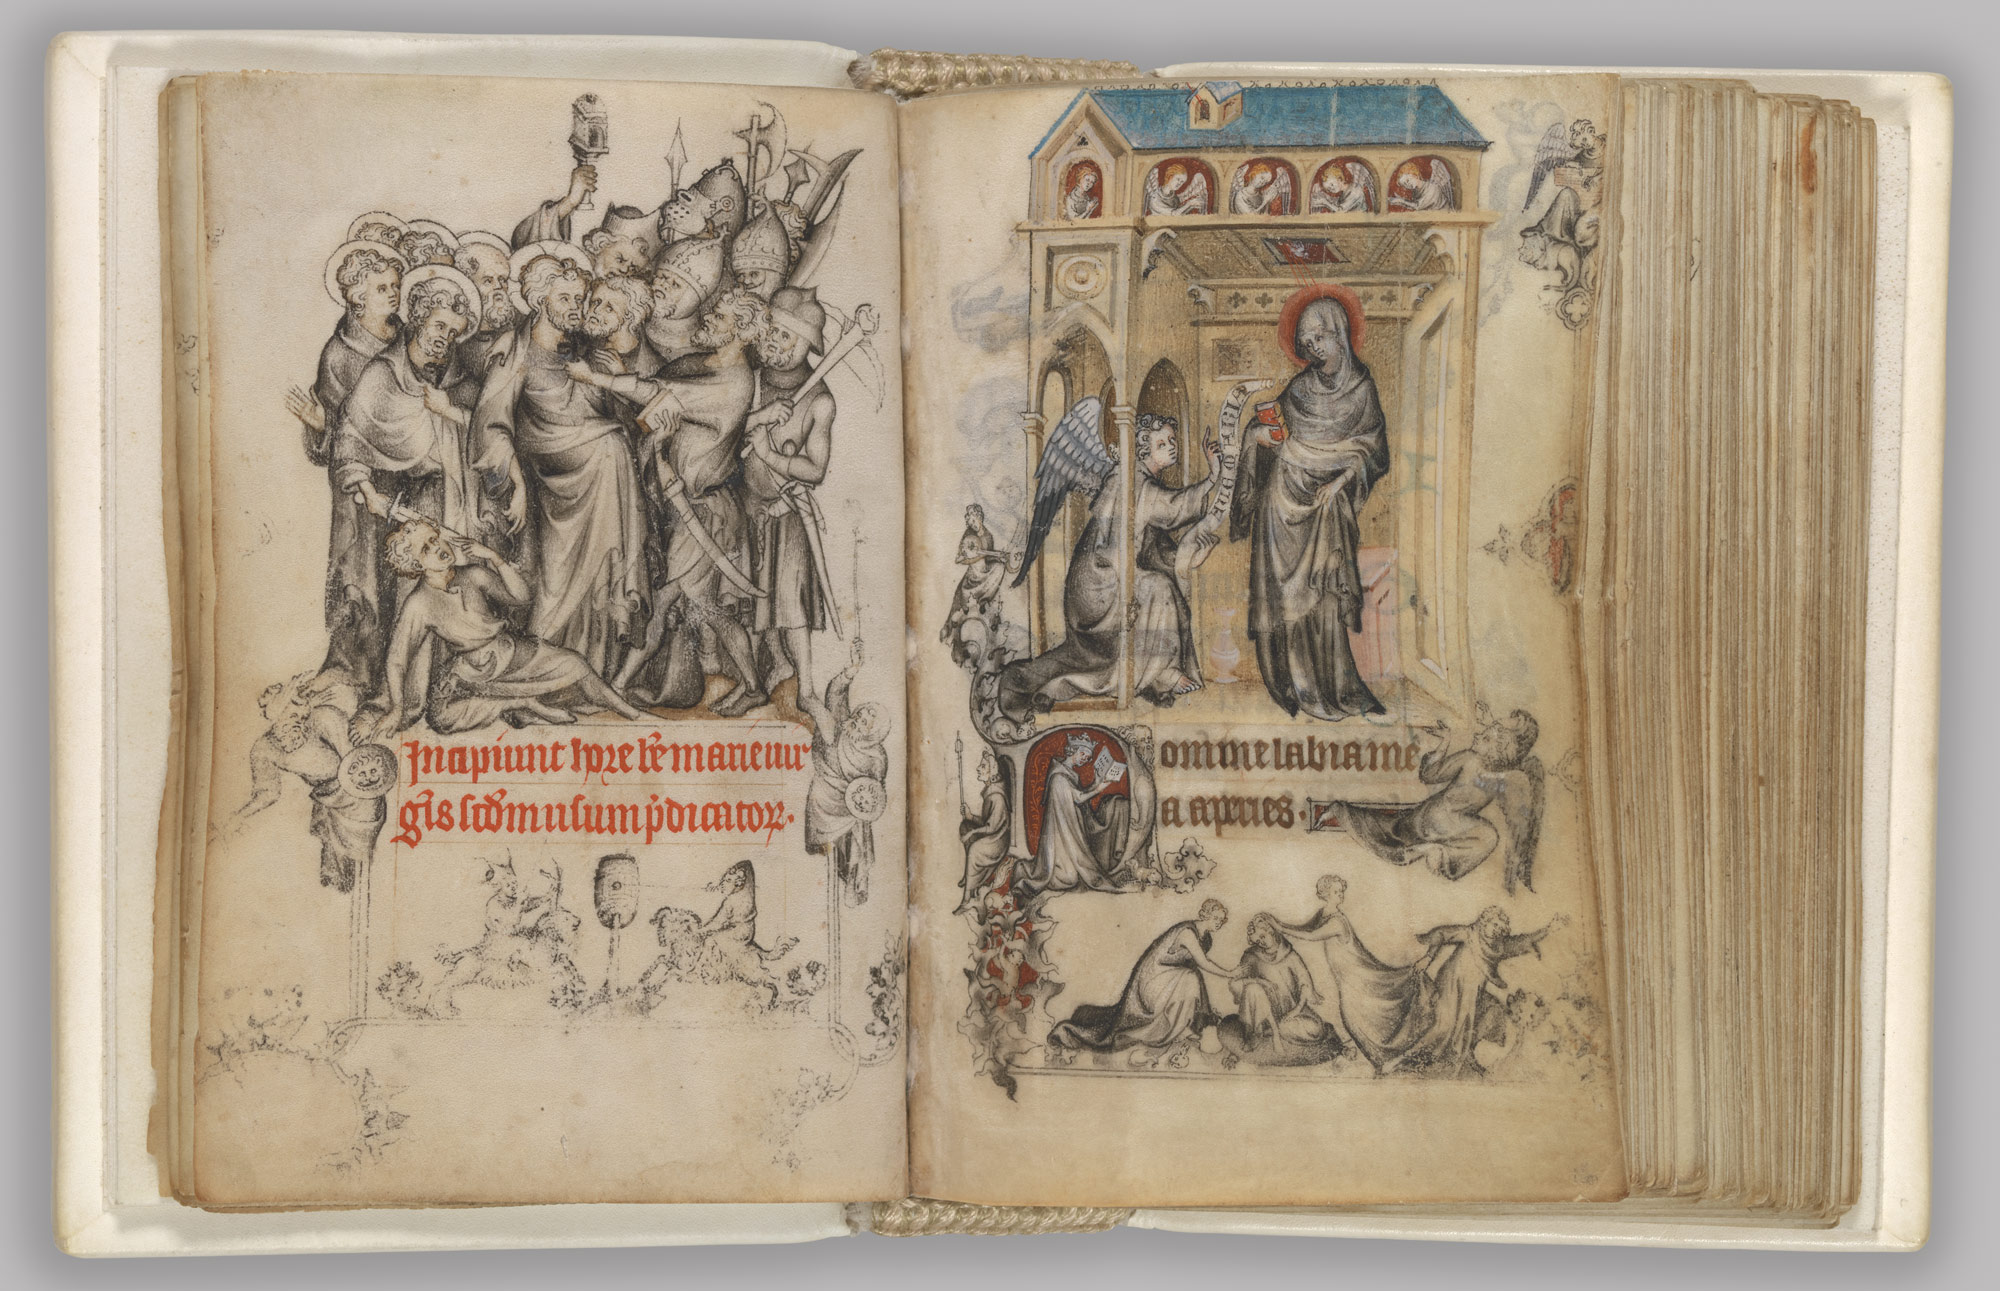 Incipiunt hore be marie uir
gis scdm usum pdicator.
aue gracia
Domine labia me
a aperies.